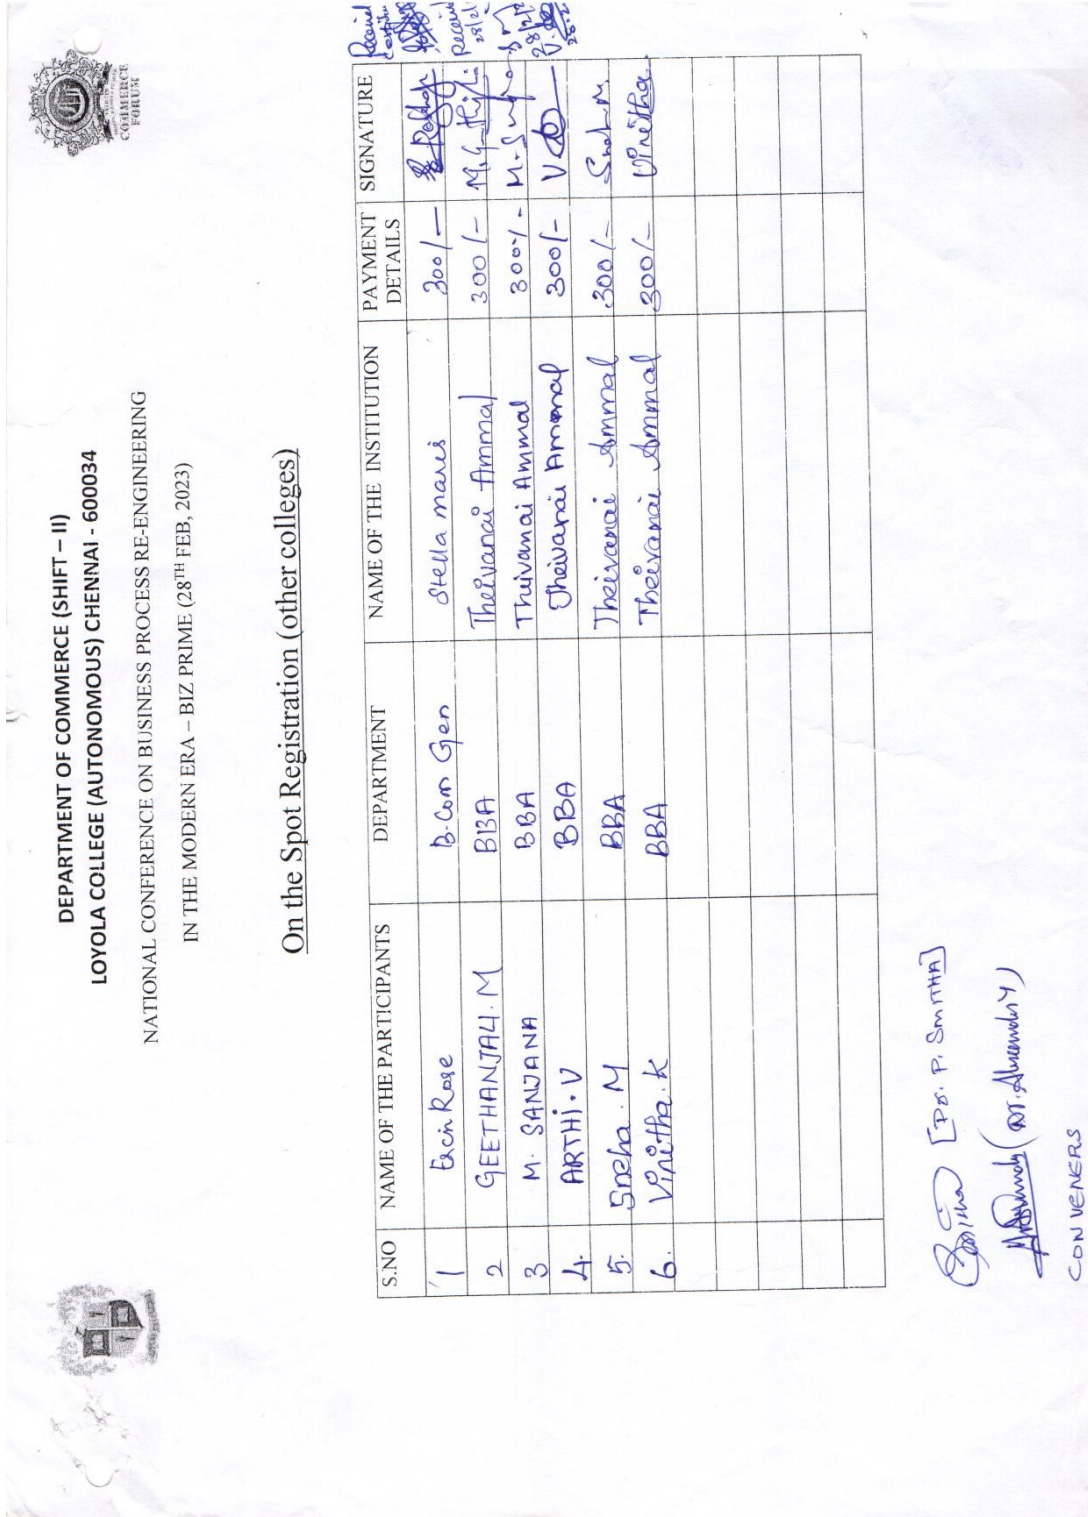 COMMERCE
FORUM
DEPARTMENT OF COMMERCE (SHIFT – II)
LOYOLA COLLEGE (AUTONOMOUS) CHENNAI - 600034
NATIONAL CONFERENCE ON BUSINESS PROCESS RE-ENGINEERING
IN THE MODERN ERA – BIZ PRIME (28TH FEB, 2023)
On the Spot Registration (other colleges)
S.NO NAME OF THE PARTICIPANTS DEPARTMENT NAME OF THE INSTITUTION PAYMENT DETAILS SIGNATURE
1 Rose B.Com Gen Stella maris 300/-
2 GEETHANJALI.M BBA Theivanai Ammal 300/-
3 M. SANJANA BBA Theivanai Ammal 300/-
4. ARTHI.V BBA Theivanai Ammal 300/-
5. Sneha.M BBA Theivanai Ammal 300/-
6. Vinitha.K BBA Theivanai Ammal 300/- Vinitha
Received
Received
[Dr. P. SMITHA]
CONVENERS